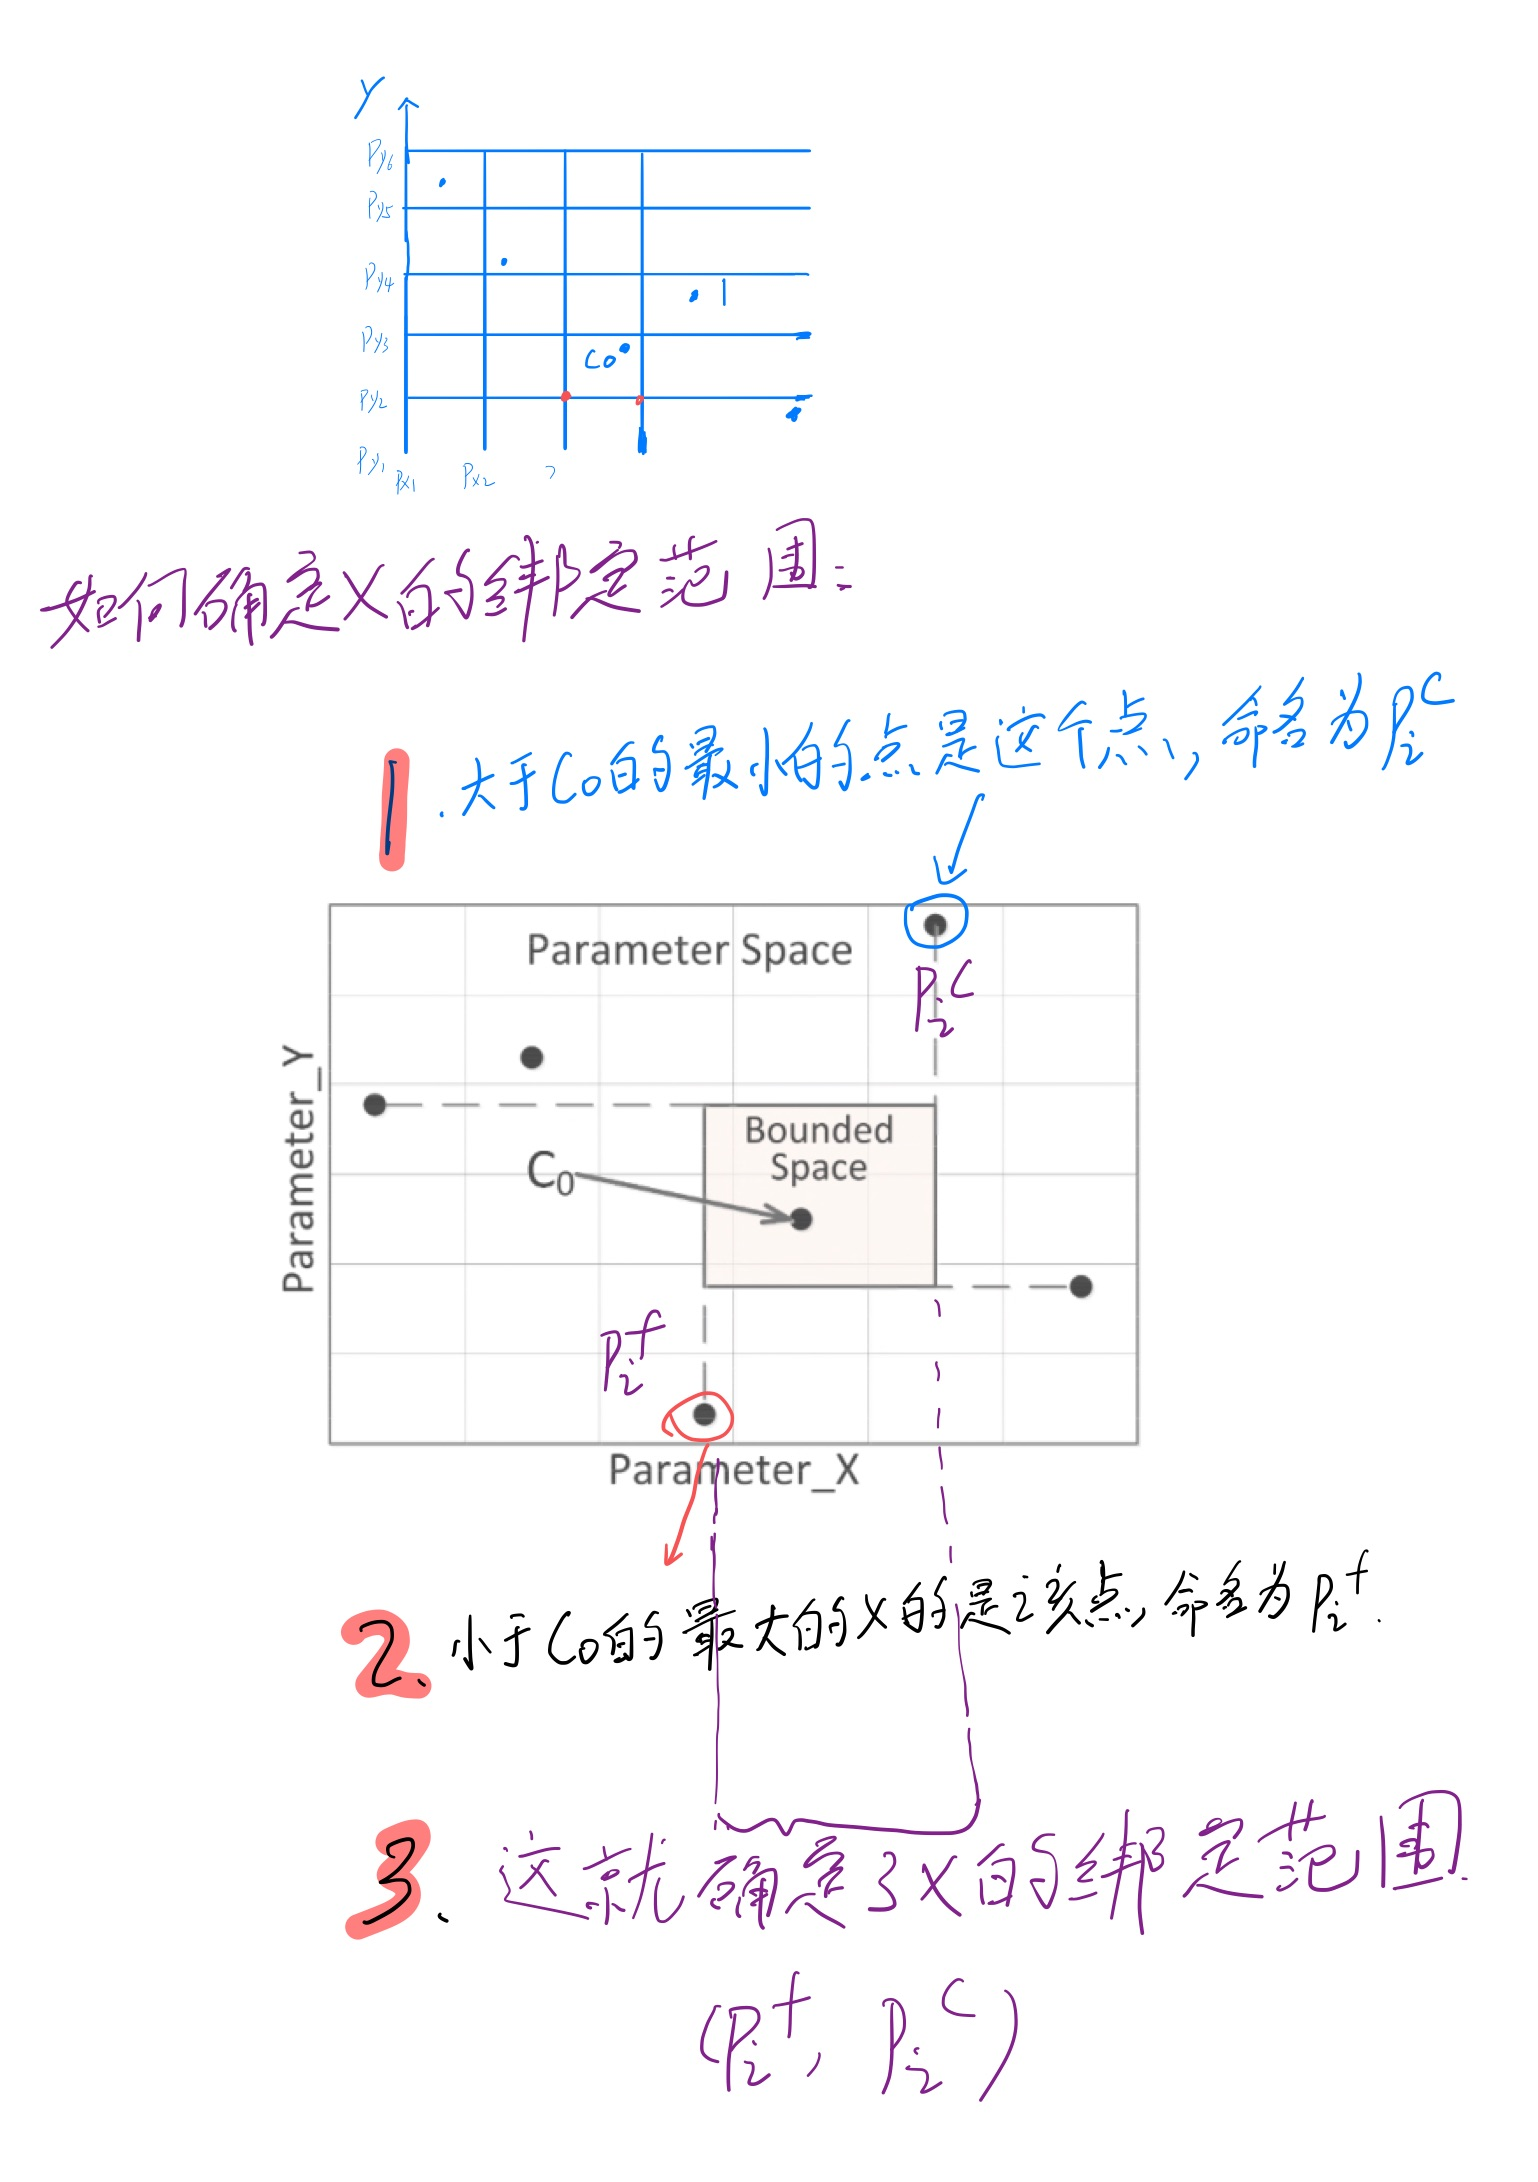 y
Py6
Py5
Py4
1
Py3
C0
Py2
Py1
Px1 Px2
如何确定X的绑定范围:
1.大于C0的最小的点是这个点,命名为Pi^c
Parameter Space
Pi^c
Parameter_Y
Bounded
Space
C0
Pi^f
Parameter_X
2、小于C0的最大的X的是该点,命名为Pi^f.
3、这就确定了X的绑定范围.
(Pi^f, Pi^c)